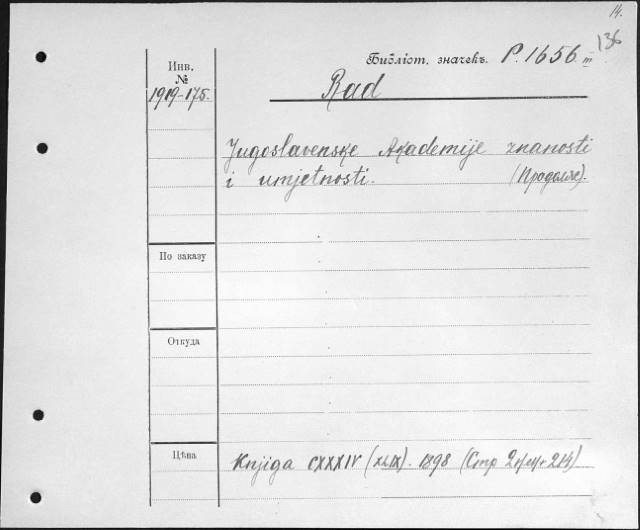 14.
136
Инв.
№
1919-175.
Библіот. значекъ. P. 1656 III
Rad
Jugoslavenske Akademije znanosti
i umjetnosti.
По заказу
Откуда
Цѣна
Knjiga CXXXIV (XLIX). 1898 (Стр 214)